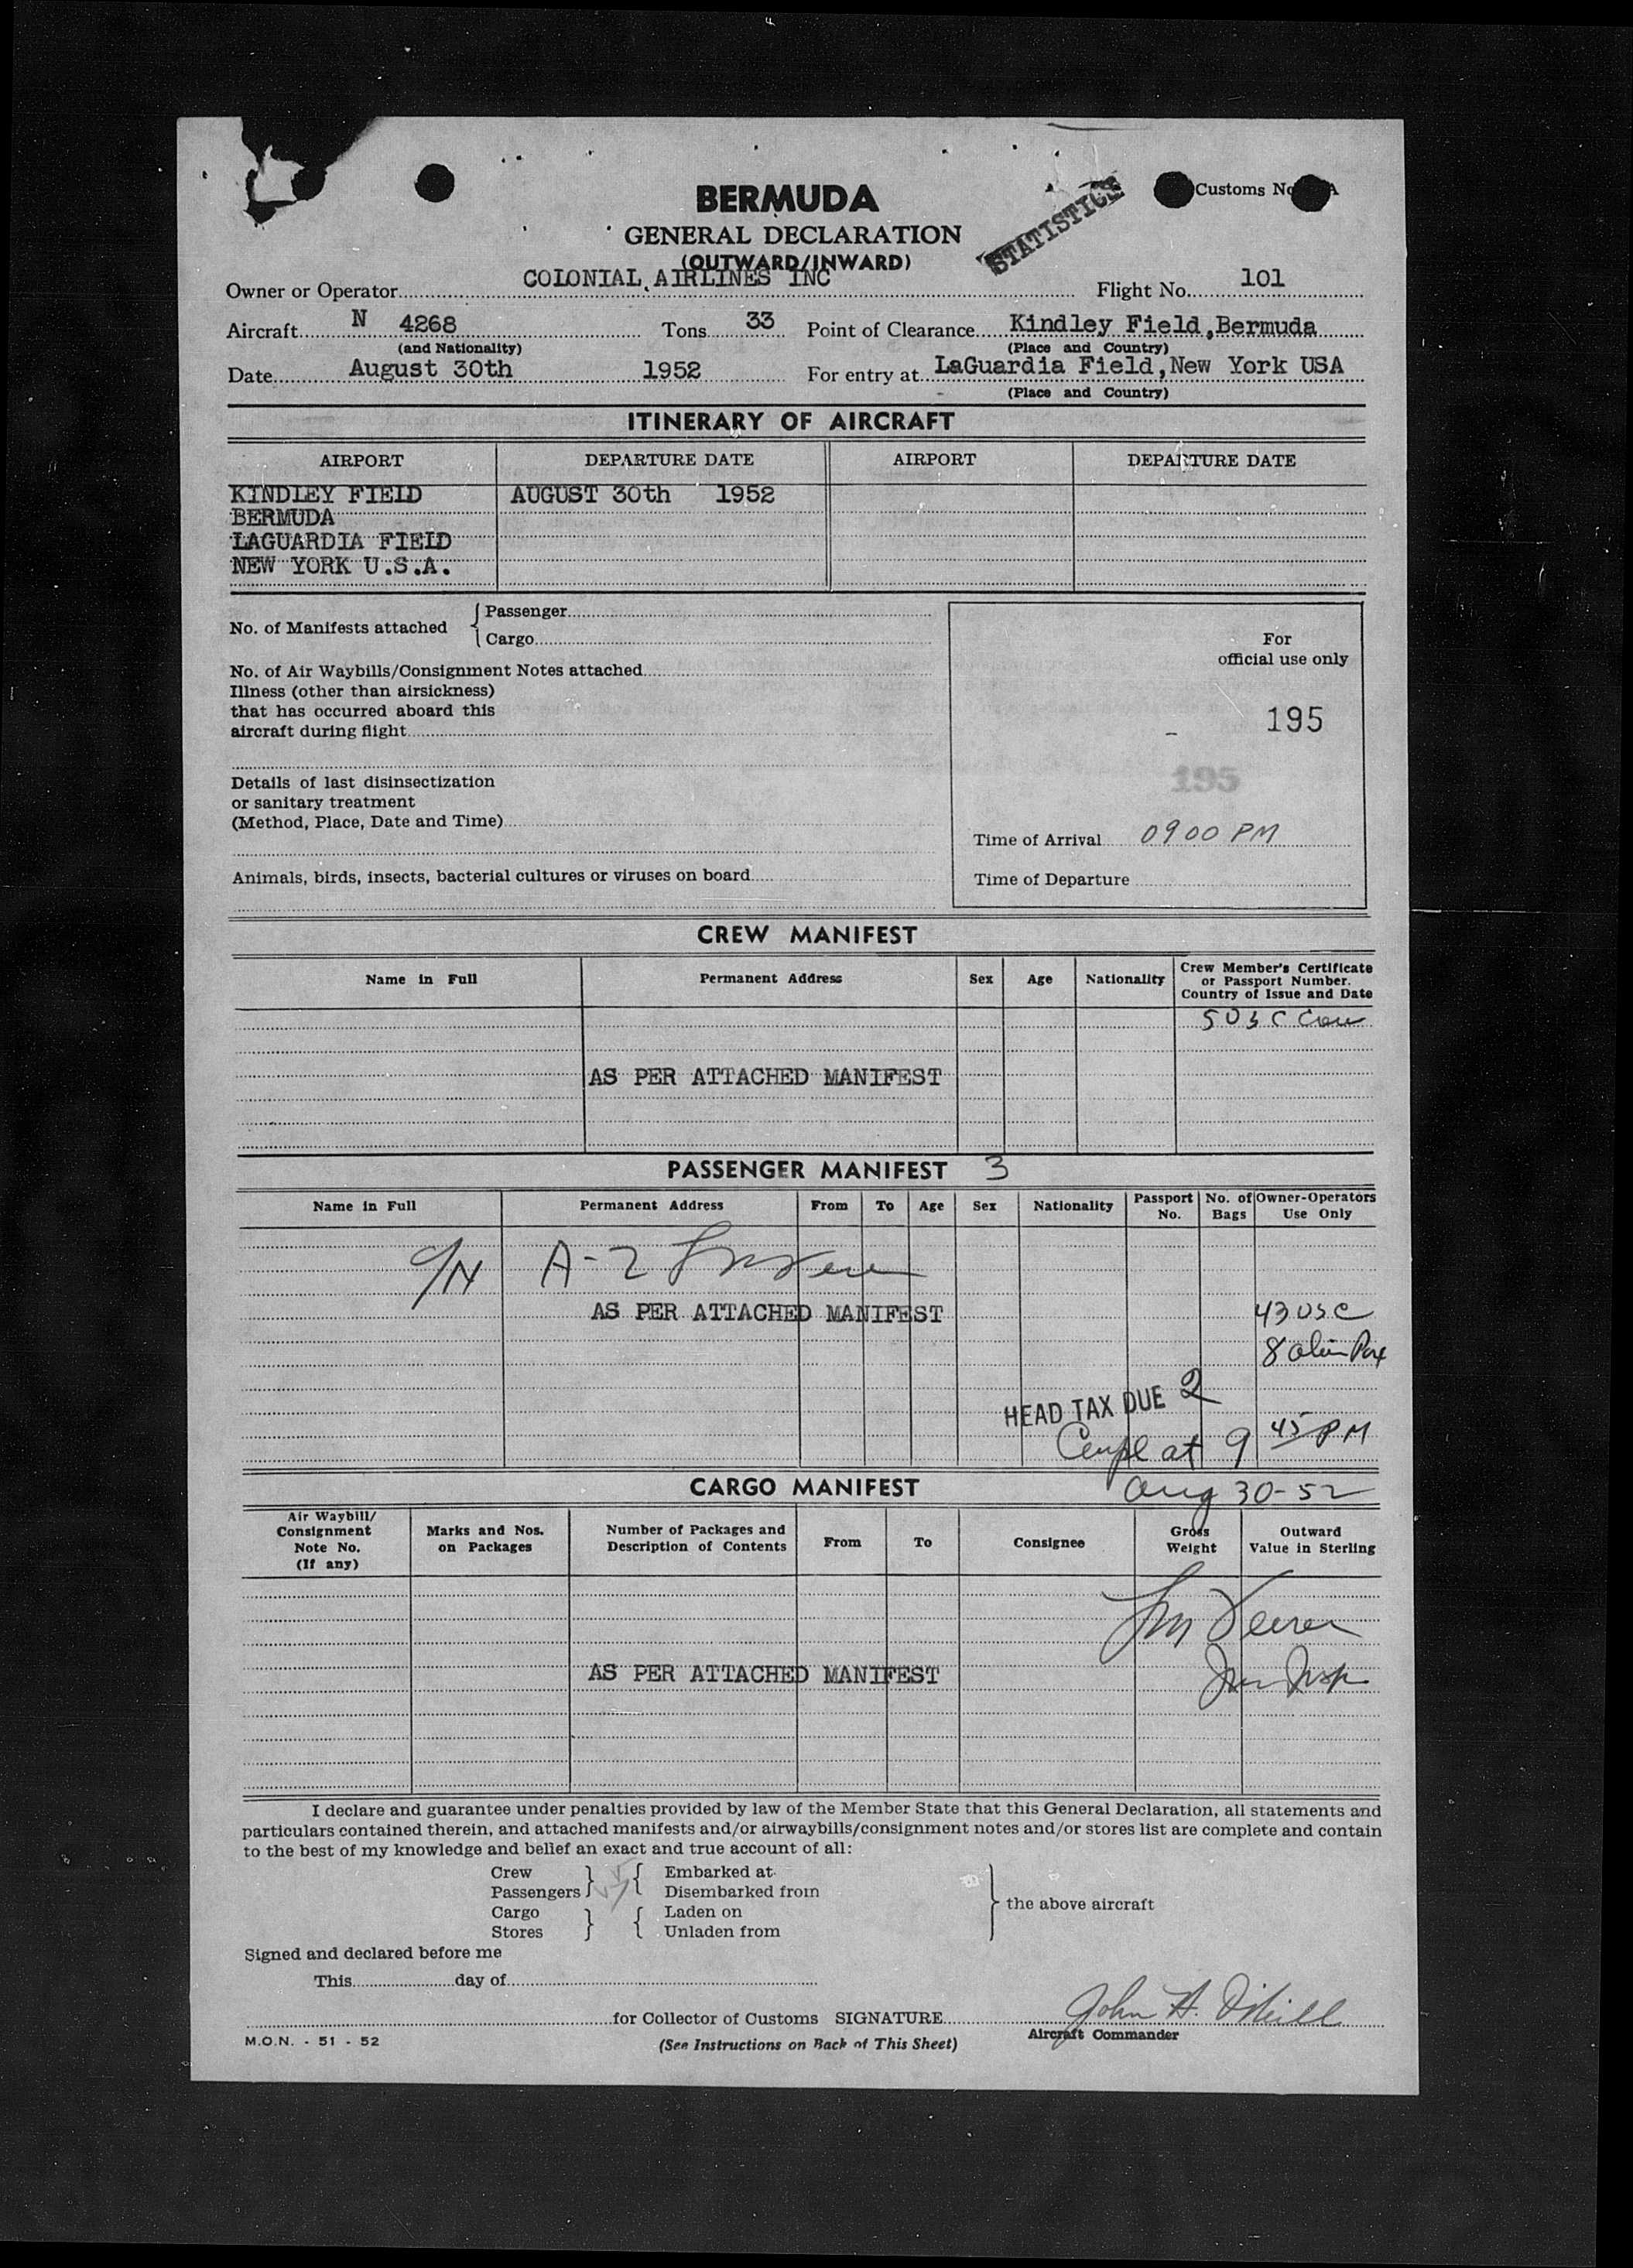 BERMUDA
Customs No. A
GENERAL DECLARATION
STATISTICS
(OUTWARD/INWARD)
Owner or Operator COLONIAL AIRLINES INC Flight No. 101
Aircraft N 4268 Tons 33 Point of Clearance Kindley Field, Bermuda
(and Nationality) (Place and Country)
Date August 30th 1952 For entry at LaGuardia Field, New York USA
(Place and Country)
ITINERARY OF AIRCRAFT
AIRPORT DEPARTURE DATE AIRPORT DEPARTURE DATE
KINDLEY FIELD AUGUST 30th 1952
BERMUDA
LAGUARDIA FIELD
NEW YORK U.S.A.
No. of Manifests attached { Passenger
Cargo
No. of Air Waybills/Consignment Notes attached
Illness (other than airsickness)
that has occurred aboard this
aircraft during flight
Details of last disinsectization
or sanitary treatment
(Method, Place, Date and Time)
Animals, birds, insects, bacterial cultures or viruses on board
For
official use only
195
195
Time of Arrival 0900 PM
Time of Departure
CREW MANIFEST
Name in Full Permanent Address Sex Age Nationality Crew Member's Certificate or Passport Number. Country of Issue and Date
5 USC Crew
AS PER ATTACHED MANIFEST
PASSENGER MANIFEST 3
Name in Full Permanent Address From To Age Sex Nationality Passport No. No. of Bags Owner-Operators Use Only
A-2
AS PER ATTACHED MANIFEST 43 USC
8 alien Pax
HEAD TAX DUE 2
at 9 45 PM
Aug 30-52
CARGO MANIFEST
Air Waybill/ Consignment Note No. (If any) Marks and Nos. on Packages Number of Packages and Description of Contents From To Consignee Gross Weight Outward Value in Sterling
AS PER ATTACHED MANIFEST
I declare and guarantee under penalties provided by law of the Member State that this General Declaration, all statements and
particulars contained therein, and attached manifests and/or airwaybills/consignment notes and/or stores list are complete and contain
to the best of my knowledge and belief an exact and true account of all:
Crew } { Embarked at
Passengers Disembarked from
Cargo } { Laden on
Stores Unladen from
} the above aircraft
Signed and declared before me
This day of
for Collector of Customs SIGNATURE John A. O'Neill
Aircraft Commander
M.O.N. - 51 - 52
(See Instructions on Back of This Sheet)